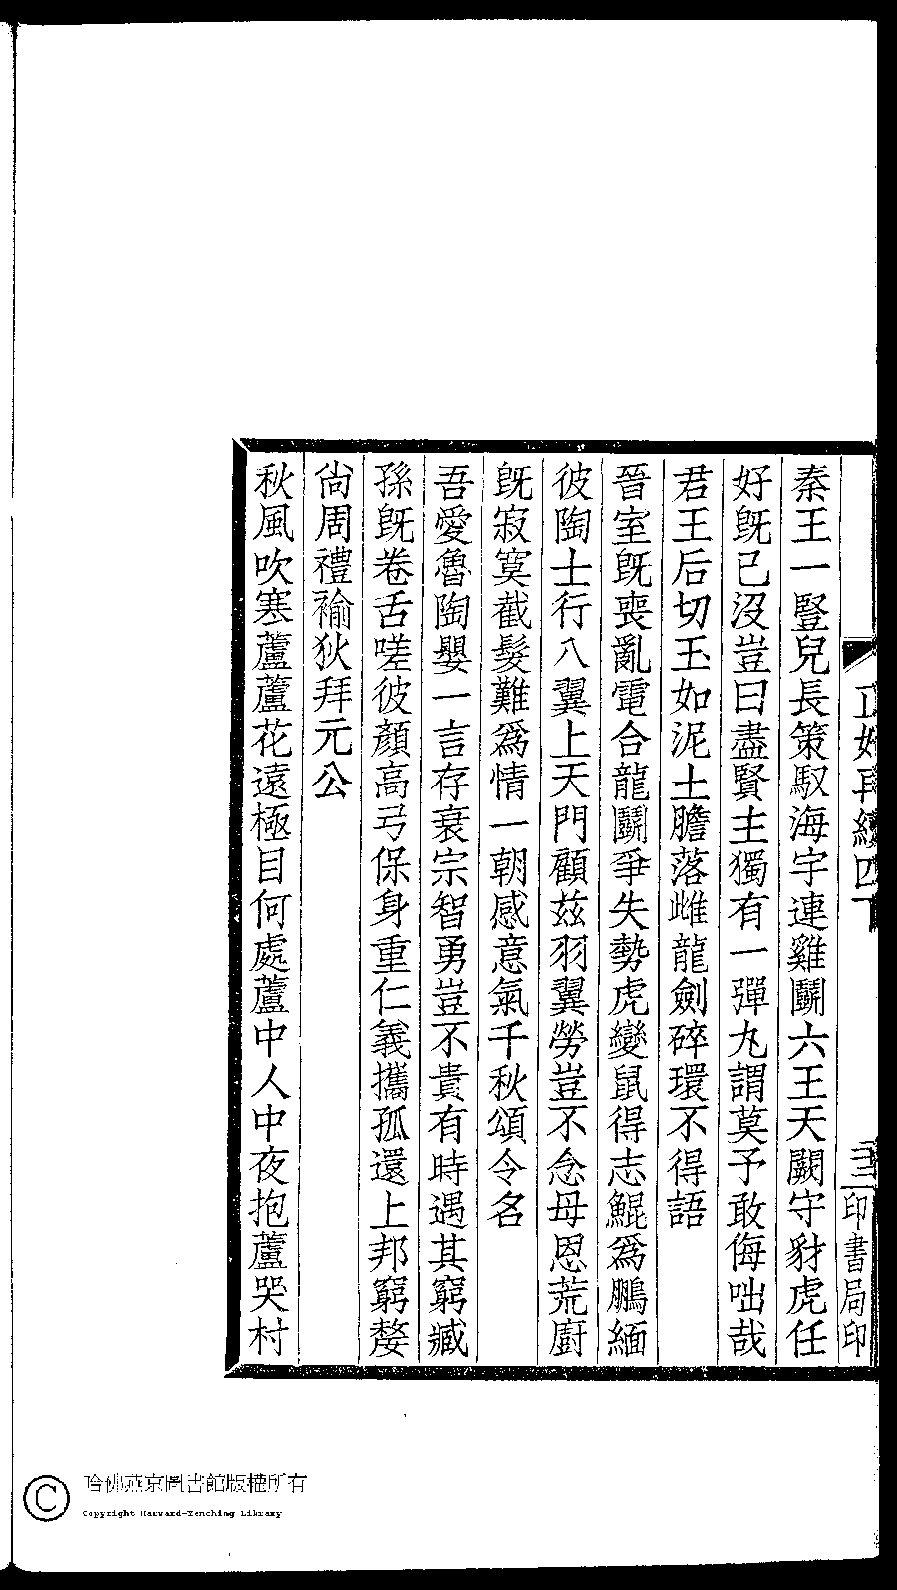 秦王一豎兒長策馭海宇連雞鬭六王天闕守豺虎任
好旣已沒豈曰盡賢主獨有一彈丸謂莫予敢侮咄哉
君王后切玉如泥土膽落雌龍劍碎環不得語
晉室旣喪亂電合龍鬭爭失勢虎變鼠得志鯤爲鵬緬
彼陶士行八翼上天門顧茲羽翼勞豈不念母恩荒廚
旣寂寞截髮難爲情一朝感意氣千秋頌令名
吾愛魯陶嬰一言存衰宗智勇豈不貴有時遇其窮臧
孫旣卷舌嗟彼顏高弓保身重仁義攜孤還上邦窮嫠
尙周禮褕狄拜元公
秋風吹寒蘆蘆花遠極目何處蘆中人中夜抱蘆哭村
正始再續四下
三
印書局印
哈佛燕京圖書館版權所有
Copyright Harvard-Yenching Library